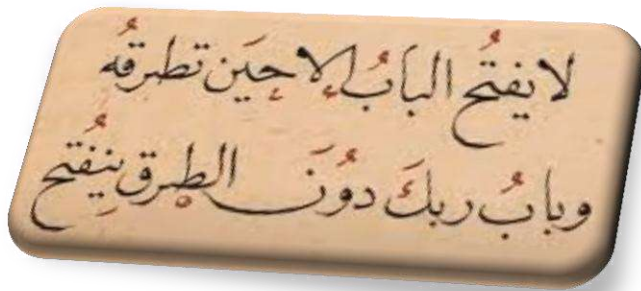 لا يفتحُ البابُ إلا حيَن تطرقهُ
وبابُ ربكَ دوُنَ الطرِق ينفتحُ